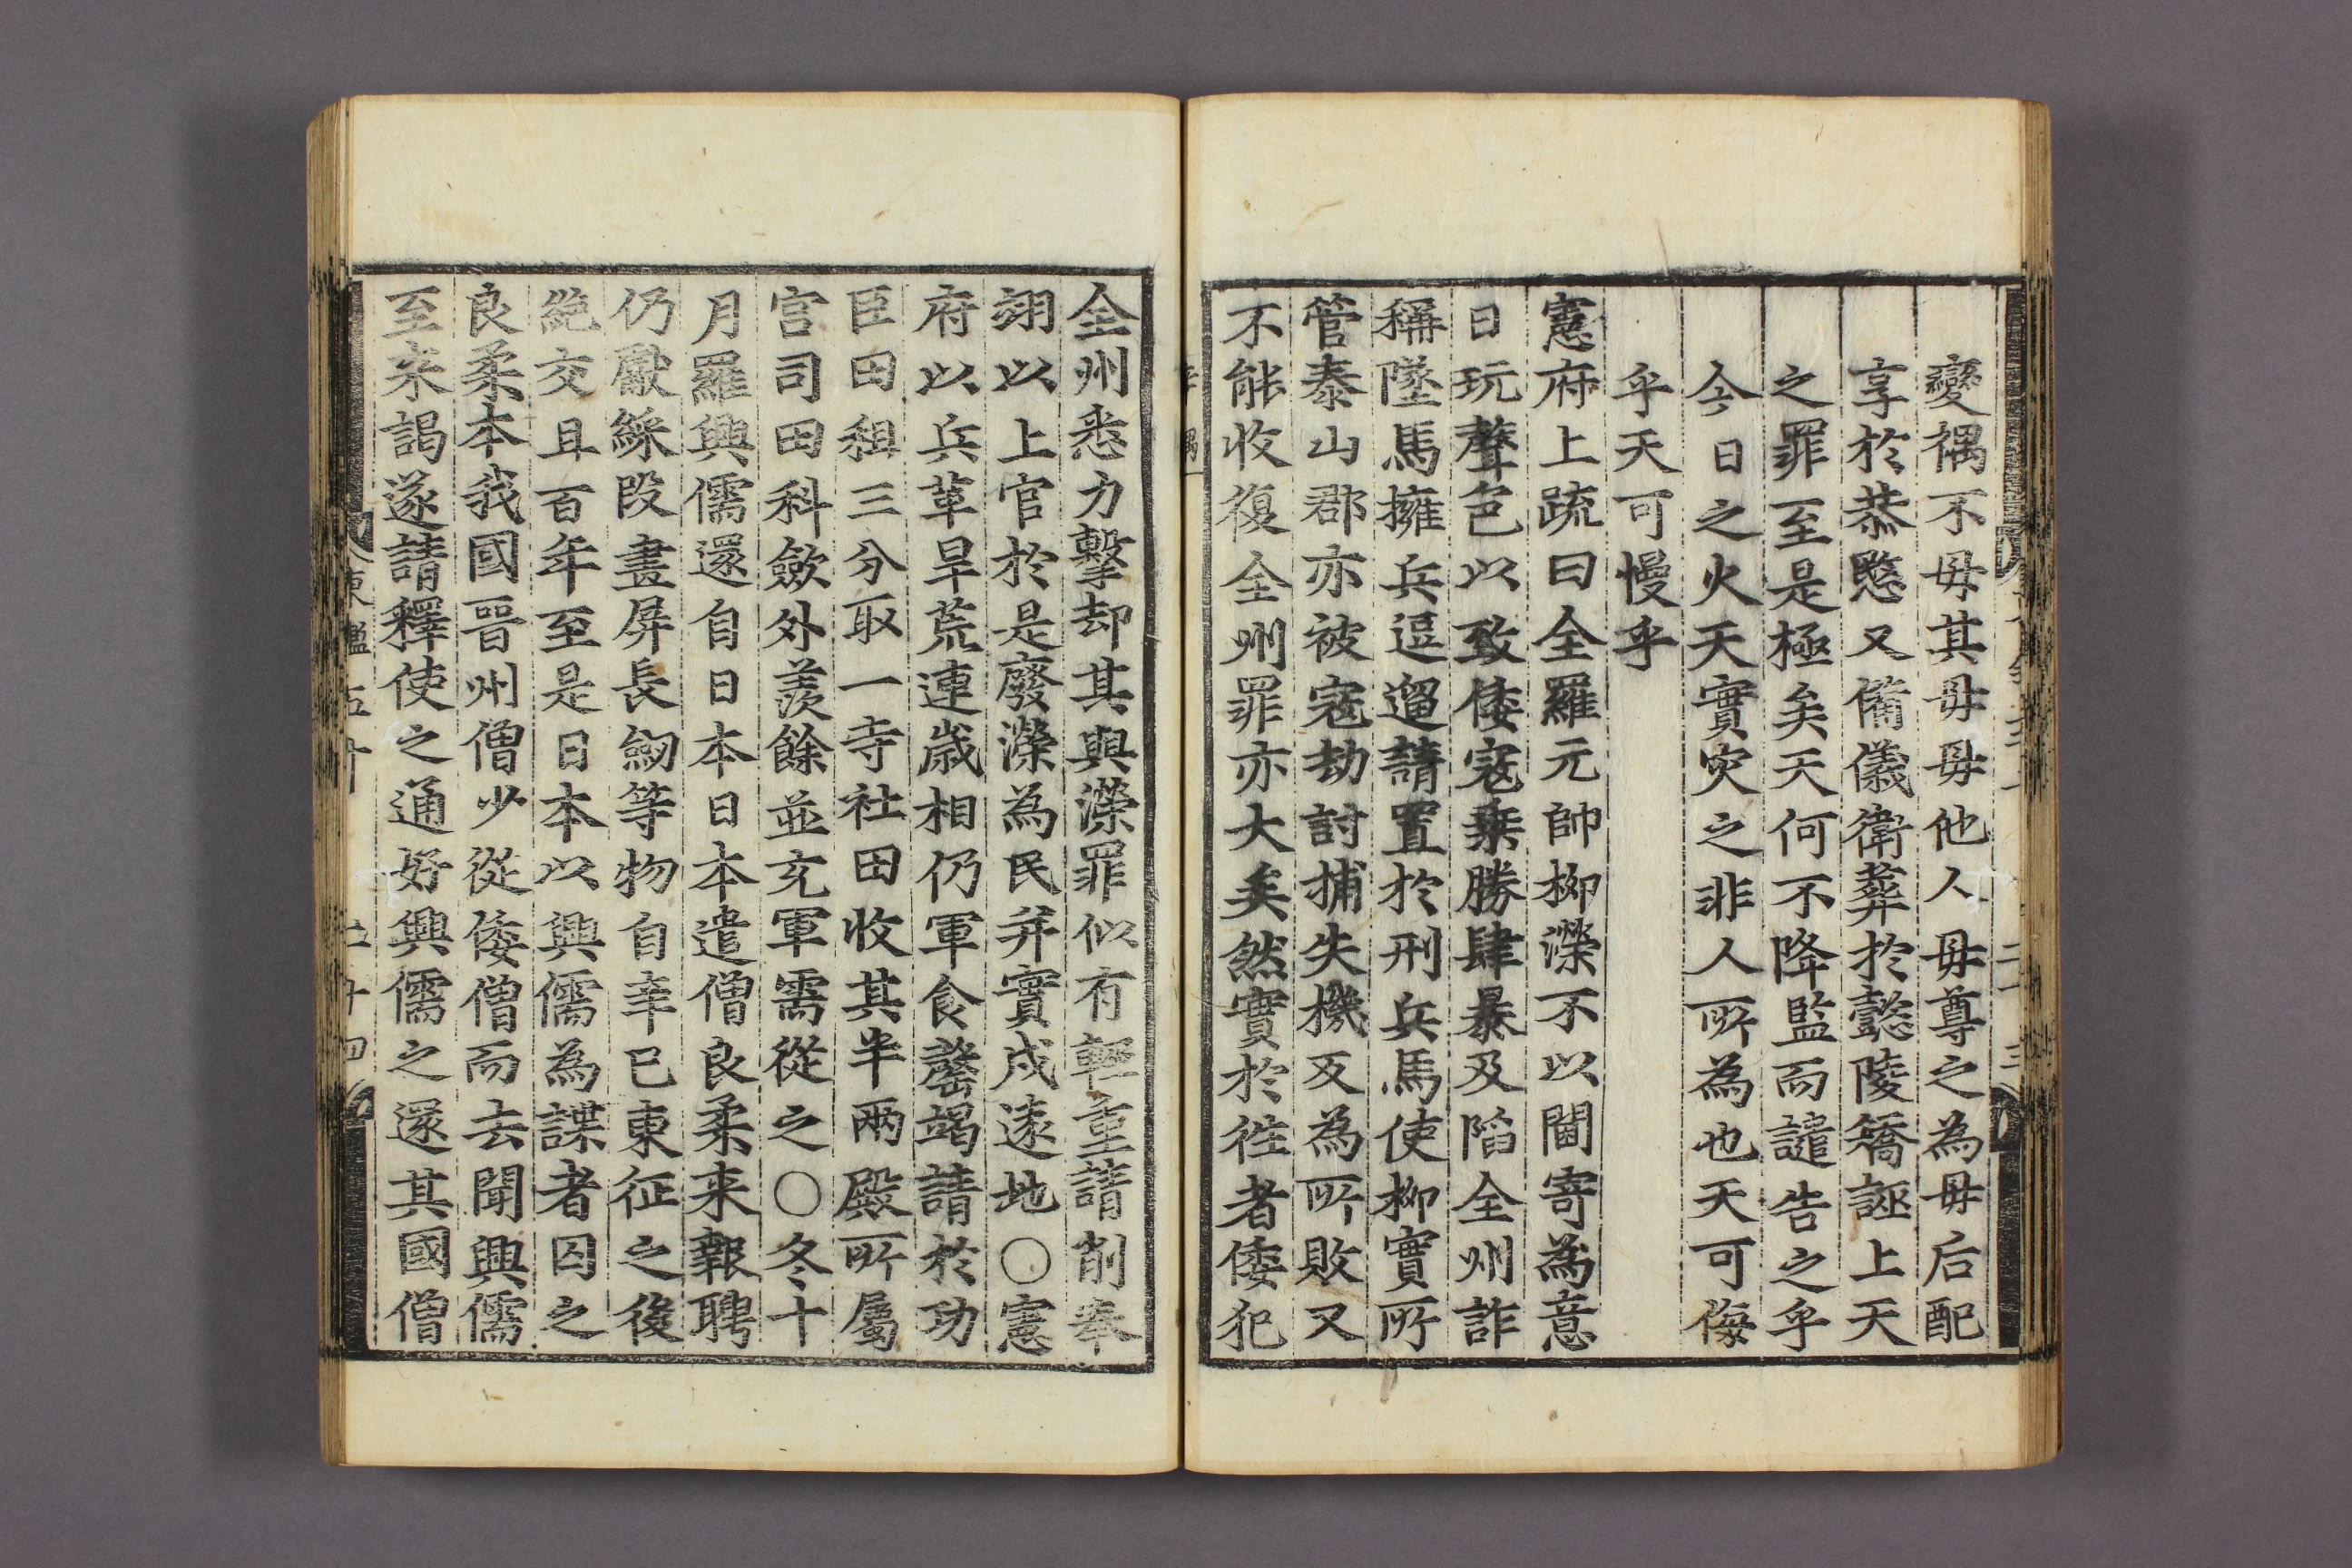 變禑不毋其毋毋他人毋尊之為毋后配
享於恭愍又備儀衛葬於懿陵矯誣上天
之罪至是極矣天何不降監而譴告之乎
今日之火天實灾之非人所為也天可侮
乎天可慢乎
憲府上疏曰全羅元帥柳濚不以閫寄為意
日玩聲色以致倭寇乗勝肆暴及陷全州詐
稱墜馬擁兵逗遛請置於刑兵馬使柳實所
管泰山郡亦被寇劫討捕失機及為所敗又
不能收復全州罪亦大矣然實於徃者倭犯
全州悉力擊却其與濚罪似有輕重請削奉
翊以上官於是廢濚為民并實戍遠地〇憲
府以兵革旱荒連歲相仍軍食罄竭請於功
臣田租三分取一寺社田收其半兩殿所屬
宮司田科斂外羡餘並充軍需從之〇冬十
月羅興儒還自日本日本遣僧良柔来報聘
仍獻綵段畫屏長劒等物自辛巳東征之後
絶交且百年至是日本以興儒為諜者囚之
良柔本我國晉州僧少從倭僧而去聞興儒
至来謁遂請釋使之通好興儒之還其國僧